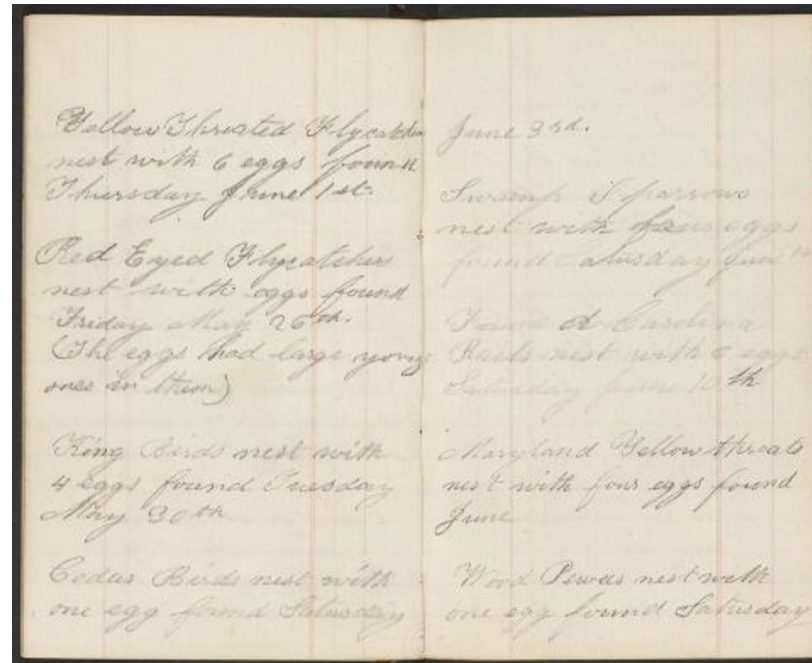 Yellow Throated Flycatcher
nest with 6 eggs found
Thursday June 1st.
Red Eyed Flycatcher
nest with eggs found
Friday May 26th.
(The eggs had large young
ones in them)
King Birds nest with
4 eggs found Tuesday
May 30th
Cedar Birds nest with
one egg found Saturday
June 3rd.
Swamp Sparrows
nest with four eggs
found Saturday June
Found a Carolina
Rails nest with 6 eggs
Saturday June 10th
Maryland Yellow throats
nest with four eggs found
June
Wood Pewees nest with
one egg found Saturday